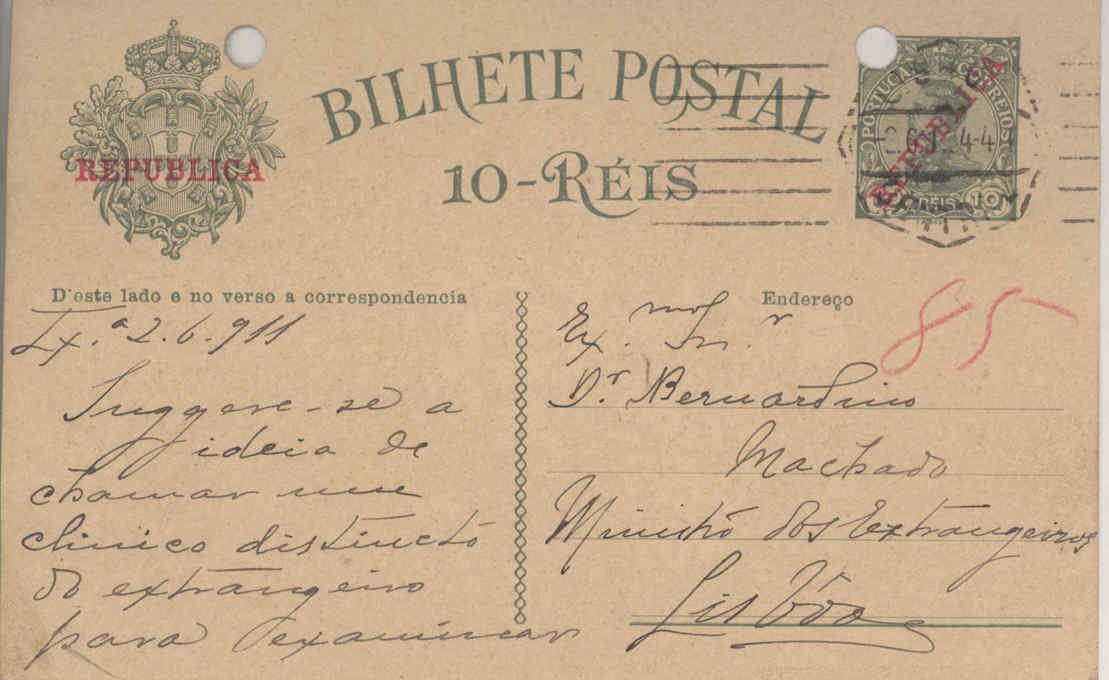 BILHETE POSTAL
10-RÉIS
REPUBLICA
PORTUGAL CORREIOS
REPUBLICA
RÉIS 10
4-4
D'este lado e no verso a correspondencia
Endereço
85
Lx.ª 2.6.911
Suggere-se a
ideia de
chamar um
clinico distincto
do extrangeiro
para examinar
Ex.mo Sr.
Dr. Bernardino
Machado
Ministro dos Extrangeiros
Lisbôa